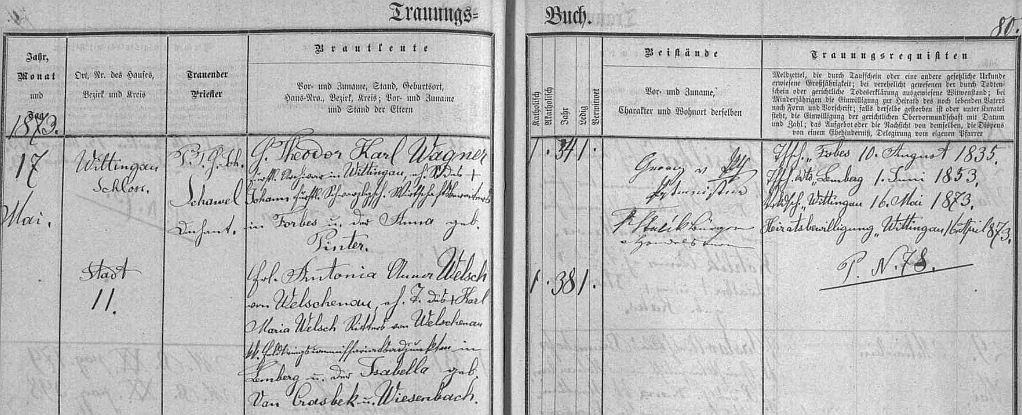 Trauungs=
Buch.
80.
Jahr,
Monat
und
Tag
Ort, Nr. des Hauses,
Bezirk und Kreis
Trauender
Priester
Brautleute
Vor- und Zuname, Stand, Geburtsort,
Haus-Nro., Bezirk, Kreis; Vor- und Zuname
und Stand der Eltern
Katholisch
Akatholisch
Jahr
Ledig
Verwitwet
Beistände
Vor- und Zuname,
Charakter und Wohnort derselben
Trauungsrequisiten
Meldzettel, die durch Taufschein oder eine andere gesetzliche Urkunde
erwiesene Großjährigkeit; bei verehelicht gewesenen der durch Todten-
schein oder gerichtliche Todeserklärung ausgewiesene Witwenstand; bei
Minderjährigen die Einwilligung zur Heirath des noch lebenden Vaters
nach Form und Vorschrift; falls derselbe gestorben ist oder unter Kuratel
steht, die Einwilligung der gerichtlichen Obervormundschaft mit Datum
und Zahl; das Aufgebot oder die Nachsicht von demselben, die Dispens
von einem Ehehinderniß, Delegirung vom eigenen Pfarrer
1873.
17
Mai.
Wittingau
Schloß.
Schawel
Dechant.
H. Theodor Karl Wagner
in Wittingau, eh. S. des †
Johann
in Forbes u. der Anna geb.
Pinter.
1. 34 1.
Georg
Tfsch. Forbes 10. August 1835.
Tfsch. Lemberg 1. Juni 1853.
Wittingau 16. Mai 1873.
Heiratsbewilligung Wittingau 16 April 873.
P. N. 78.
Stadt
11.
Frl. Antonia Anna Welsch
von Welschenau, eh. T. des † Karl
Maria Welsch Ritters von Welschenau
in
Lemberg u. der Isabella geb.
Van Crasbek u. Wiesenbach.
1. 38 1.